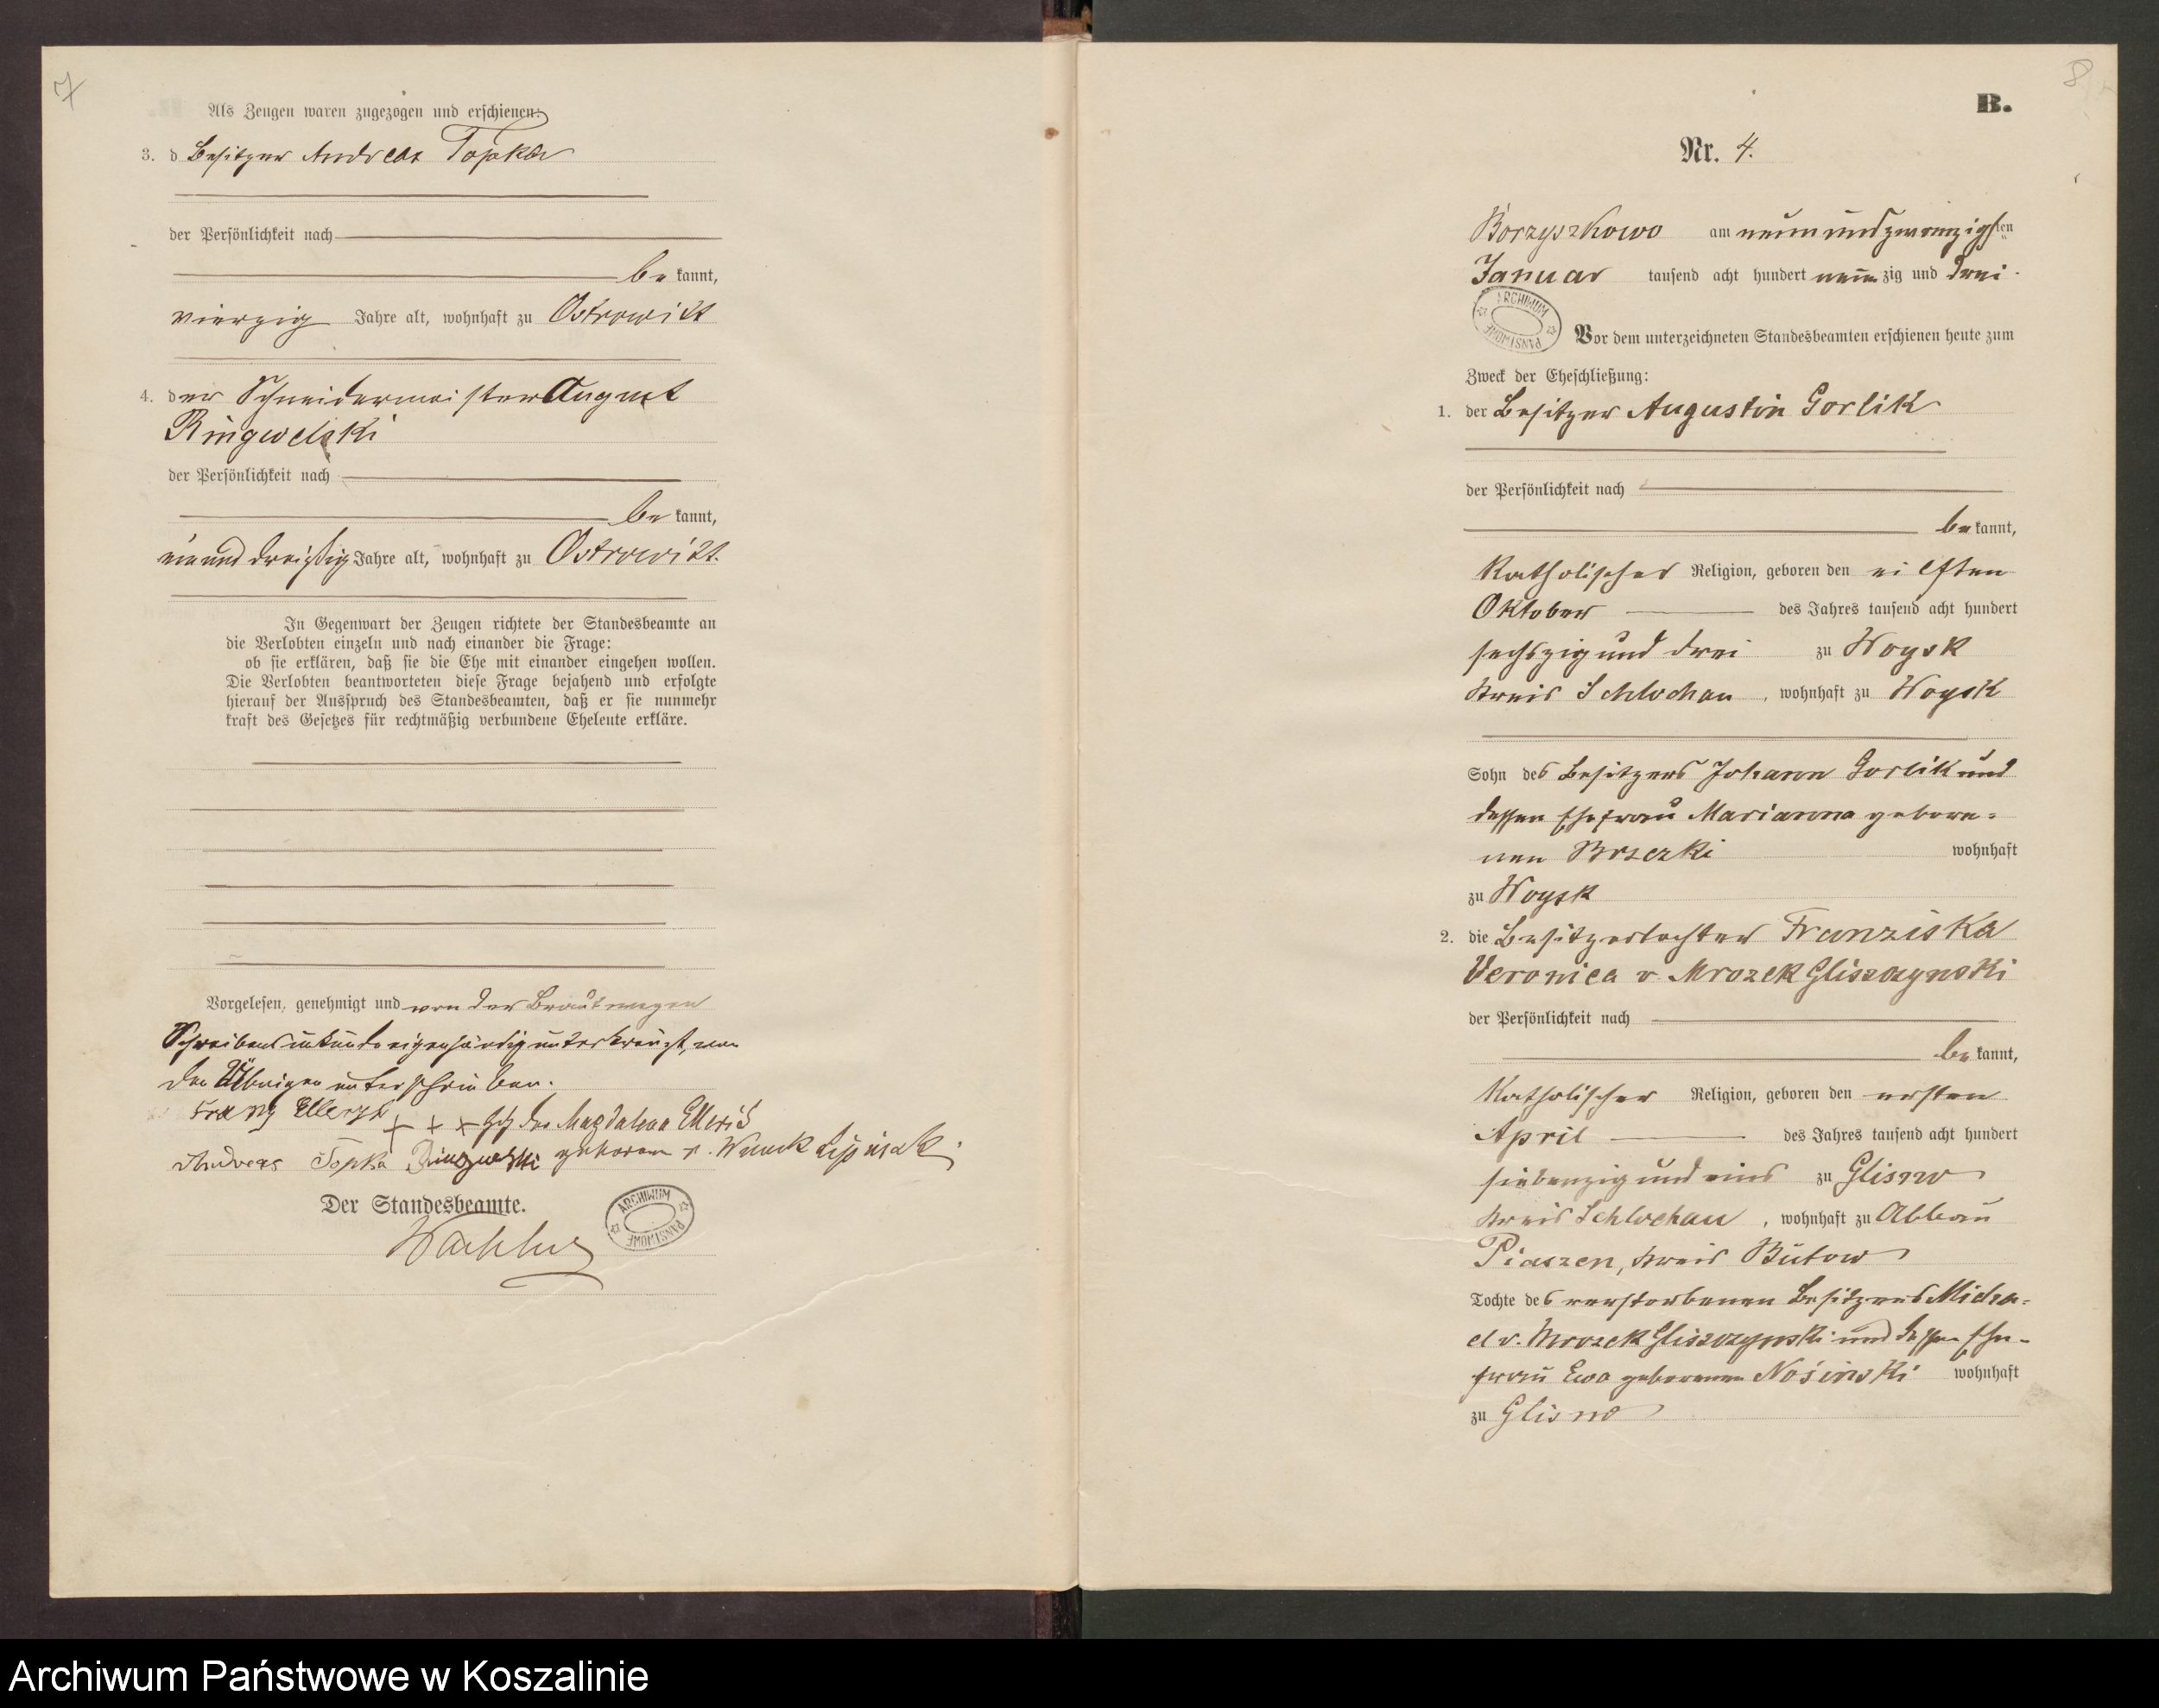 7
Als Zeugen waren zugezogen und erschienen:
3. d Besitzer Andreas Topka
der Persönlichkeit nach
be kannt,
vierzig Jahre alt, wohnhaft zu Ostrowitt
4. der Schneidermeister August
Ringwelski
der Persönlichkeit nach
be kannt,
einunddreißig Jahre alt, wohnhaft zu Ostrowitt.
In Gegenwart der Zeugen richtete der Standesbeamte an
die Verlobten einzeln und nach einander die Frage:
ob sie erklären, daß sie die Ehe mit einander eingehen wollen.
Die Verlobten beantworteten diese Frage bejahend und erfolgte
hierauf der Ausspruch des Standesbeamten, daß er sie nunmehr
kraft des Gesetzes für rechtmäßig verbundene Eheleute erkläre.
Vorgelesen, genehmigt und von der Braut wegen
Schreibensunkunde eigenhändig unterkreuzt, von
den Übrigen unterschrieben.
Franz
+ + + Magdalena
Andreas Topka geborene v.
Der Standesbeamte.
ARCHIWUM PAŃSTWOWE
8
B.
Nr. 4.
Borzyszkowo am neunundzwanzigsten
Januar tausend acht hundert neunzig und drei
ARCHIWUM PAŃSTWOWE
Vor dem unterzeichneten Standesbeamten erschienen heute zum
Zweck der Eheschließung:
1. der Besitzer Augustin Gorlik
der Persönlichkeit nach
be kannt,
katholischer Religion, geboren den eilften
Oktober des Jahres tausend acht hundert
sechszig und drei zu Woysk
Kreis Schlochau, wohnhaft zu Woysk
Sohn des Besitzers Johann Gorlik und
dessen Ehefrau Marianna gebore-
nen wohnhaft
zu Woysk
2. die Besitzertochter Franziska
Veronica v. Mrozek Gliszczynski
der Persönlichkeit nach
be kannt,
katholischer Religion, geboren den ersten
April des Jahres tausend acht hundert
siebenzig und eins zu Glisno
Kreis Schlochau, wohnhaft zu Abbau
Piaszen, Kreis Bütow
Tochte des verstorbenen Besitzers Micha-
el v. Mrozek Gliszczynski und dessen Ehe-
frau Ewa geborenen Nosinski wohnhaft
zu Glisno
Archiwum Państwowe w Koszalinie